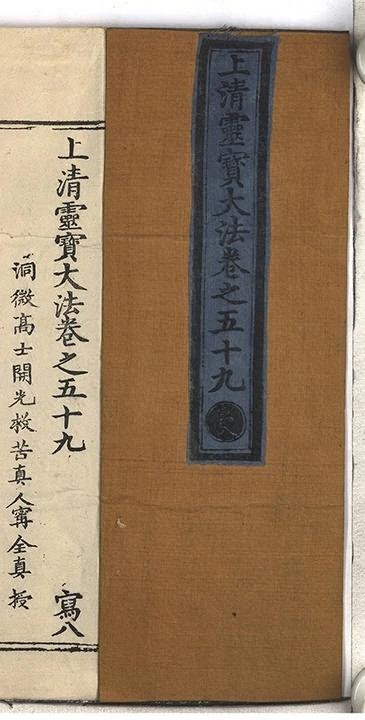 上清靈寶大法卷之五十九
上清靈寶大法卷之五十九 寫八
洞微高士開光救苦真人寗全真授